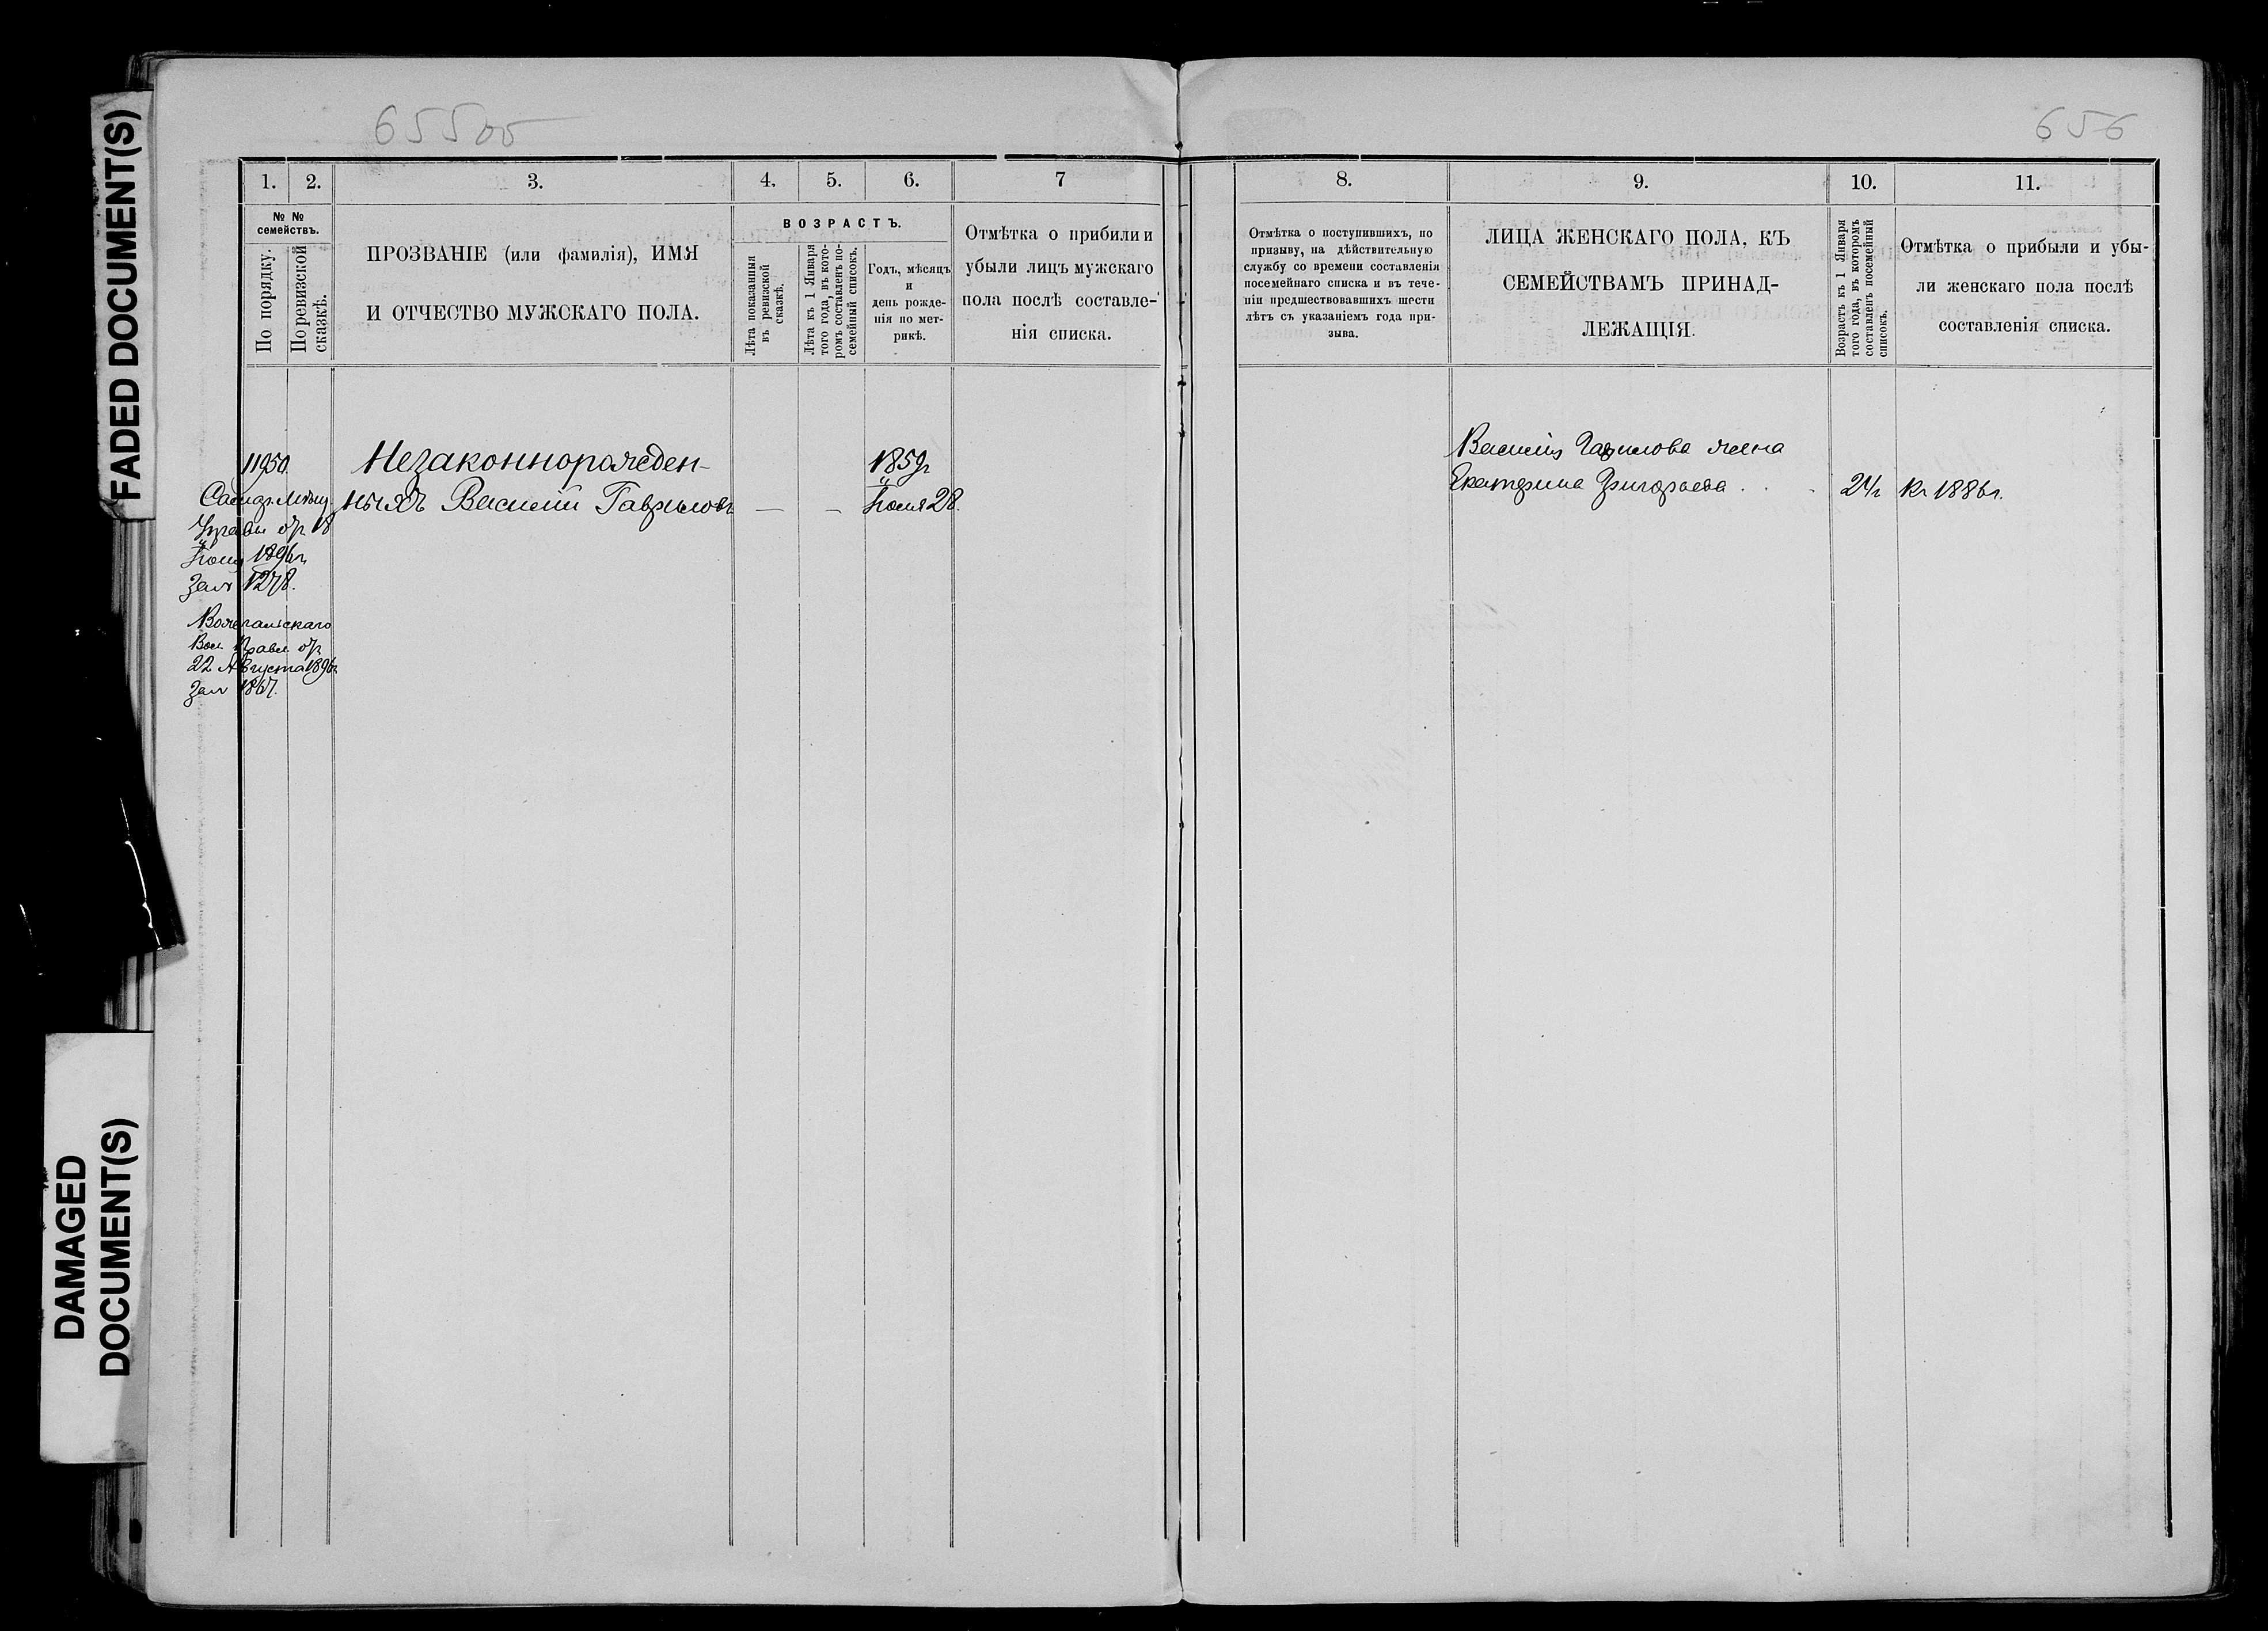 FADED DOCUMENT(S)
DAMAGED
DOCUMENT(S)
655об
1.
2.
3.
4.
5.
6.
7
№ №
семействъ.
По порядку.
По ревизской
сказкѣ.
ПРОЗВАНІЕ (или фамилія), ИМЯ
И ОТЧЕСТВО МУЖСКАГО ПОЛА.
ВОЗРАСТЪ.
Лѣта показанныя
въ ревизской
сказкѣ.
Лѣта къ 1 Января
того года, въ кото-
ромъ составленъ по-
семейный списокъ.
Годъ, мѣсяцъ
и
день рожде-
нія по мет-
рикѣ.
Отмѣтка о прибыли и
убыли лицъ мужскаго
пола послѣ составле-
нія списка.
11950.
Управы
1896г.
1278.
Вол. Правл.
22 Августа 1896г.
1867.
Незаконнорожден-
ныхъ Василій Гавриловъ
— —
1859г.
Іюля 28.
656
8.
9.
10.
11.
Отмѣтка о поступившихъ, по
призыву, на дѣйствительную
службу со времени составленія
посемейнаго списка и въ тече-
ніи предшествовавшихъ шести
лѣтъ съ указаніемъ года при-
зыва.
ЛИЦА ЖЕНСКАГО ПОЛА, КЪ
СЕМЕЙСТВАМЪ ПРИНАД-
ЛЕЖАЩІЯ.
Возрастъ къ 1 Января
того года, въ которомъ
составленъ посемейный
списокъ.
Отмѣтка о прибыли и убы-
ли женскаго пола послѣ
составленія списка.
Василія Гаврилова жена
Екатерина Григорьева . .
1886г.